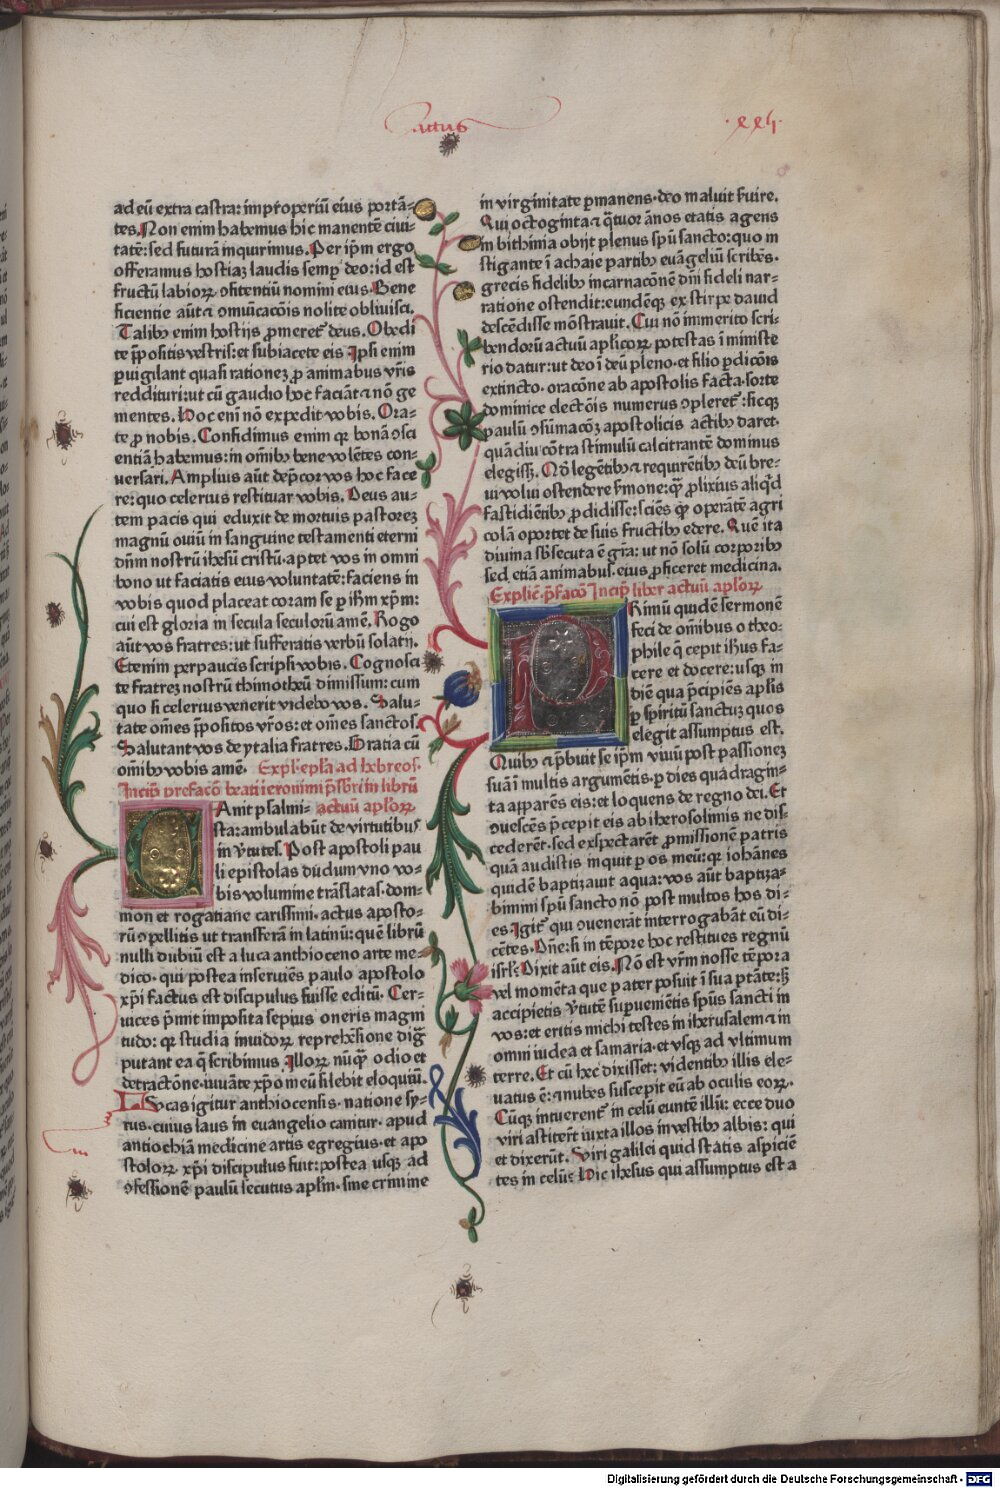 Actus
·xxij·
ad eū extra castra: improperiū eius portā-
tes. Non enim habemus hic manentē ciui-
tatē: sed futurā inquirimus. Per ip̄m ergo
offeramus hostiaʒ laudis semꝑ deo: id est
fructū labioꝝ ꝯfitentiū nomini eius. Bene
ficientie aūt ⁊ ꝯmuīcacōis nolite obliuisci.
Talibꝰ enim hostijs ꝓmeret̄ deus. Obedi
te p̄positis vestris: et subiacete eis Ipsi enim
ꝑuigilant quasi rationeʒ ꝓ animabus vr̄is
reddituri: ut cū gaudio hoc faciāt ⁊ nō ge
mentes. Hoc eni nō expedit vobis. Ora-
te ꝓ nobis. Confidimus enim qꝛ bonā ꝯsci
entiā habemus: in om̄ibꝰ bene volētes con-
uersari. Amplius aūt dep̄cor vos hoc face
re: quo celerius restituar vobis. Deus au-
tem pacis qui eduxit de mortuis pastoreʒ
magnū ouiū in sanguine testamenti eterni
dn̄m nostrū ihesū cristū. aptet vos in omni
bono ut faciatis eius voluntatē: faciens in
vobis quod placeat coram se ꝑ ih̄m xp̄m:
cui est gloria in secula seculorū amē. Rogo
aūt vos fratres: ut sufferatis verbū solatij.
Etenim perpaucis scripsi vobis. Cognosci
te fratreʒ nostrū thimotheū dimissum: cum
quo si celerius venerit videbo vos. Salu-
tate om̄es p̄positos vr̄os: et om̄es sanctos.
Salutant vos de ytalia fratres. Gratia cū
om̄ibꝰ vobis amē. Expl. ep̄la ad hebreos.
Incip̄ prefacō beati ieronimi p̄sbri in librū
actuū apl̓oꝝ
CAnit psalmi-
sta: ambulabūt de virtutibus
in v̓tutes. Post apostoli pau
li epistolas dudum vno vo-
bis volumine trāslatas. dom-
mon et rogatiane carissimi. actus aposto-
rū ꝯpellitis ut transferā in latinū: quē librū
nulli dubiū est a luca anthioceno arte me-
dico. qui postea inseruiēs paulo apostolo
xp̄i factus est discipulus fuisse editū. Cer-
uices p̄mit imposita sepius oneris magni
tudo: qꝛ studia inuidoꝝ reprehēsione dig̅
putant ea q̄ scribimus. Illoꝝ nūq̄ꝫ odio et
detractōne. iuuāte xp̄o meū silebit eloquiū.
LVcas igitur anthiocensis. natione sy-
rus. cuius laus in euangelio canitur. apud
antiochiā medicine artis egregius. et apo
stoloꝝ xp̄i discipulus fuit: postea usqꝫ ad
ꝯfessionē paulū secutus apl̓m. sine crimine
in virginitate ꝑmanens. deo maluit ẜuire.
Qui octoginta ⁊ q̄tuor ānos etatis agens
in bithinia obijt plenus spū sancto: quo in
stigante ī achaie partibꝰ euāgeliū scribēs.
grecis fidelibꝰ incarnacōnē dn̄i fideli nar-
ratione ostendit: eundēqꝫ ex stirpe dauid
descēdisse mōstrauit. Cui nō immerito scri-
bendorū actuū apl̓icoꝝ potestas ī ministe
rio datur: ut deo ī deū pleno. et filio ꝑdicōis
extincto. oracōne ab apostolis facta. sorte
dominice electōis numerus ꝯpleret̄: sicqꝫ
paulū ꝯsūmacōʒ apostolicis actibꝰ daret.
quā diu cōtra stimulū calcitrantē dominus
elegisꝫ. Nō legētibꝰ ⁊ requirētibꝰ deū bre-
ui volui ostendere ẜmone: q̄ꝫ ꝓlixius aliq̄d
fastidiētibꝰ ꝓdidisse: sciēs q̄ꝫ operātē agri
colā oportet de suis fructibꝰ edere. Quē ita
diuina sb̓secuta ē gr̄a: ut nō solū corꝑoribꝰ
sed etiā animabus. eius ꝓficeret medicina.
Explic̄. p̄facō Incip̄ liber actuū apl̓oꝝ
PRimū quidē sermonē
feci de om̄ibus o theo-
phile q̄ cepit ih̄us fa-
cere et docere: usqꝫ in
diē qua p̄cipiēs apl̓is
ꝑ spiritū sanctuʒ quos
elegit assumptus est.
Quibꝰ ⁊ p̄buit se ip̄m viuū post passioneʒ
suā ī multis argumētis. ꝑ dies quadragin-
ta apparēs eis: et loquens de regno dei. Et
ꝯuescēs p̄cepit eis ab iherosolimis ne dis-
cederēt. sed exspectarēt ꝓmissionē patris
quā audistis inquit ꝑ os meū: qꝛ iohānes
quidē baptizauit aqua: vos aūt baptiza-
bimini spū sancto nō post multos hos di-
es. Igit̄ qui ꝯuenerāt interrogabāt eū di-
cētes. Dn̄e: si in tēpore hoc restitues regnū
isrl̓. Dixit aūt eis. Nō est vr̄m nosse tēpora
vel momēta que pater posuit ī sua ptāte: sꝫ
accipietis v̓tutē suꝑueniētis spūs sancti in
vos: et eritis michi testes in iherusalem ⁊ in
omni iudea et samaria. et vsqꝫ ad vltimum
terre. Et cū hec dixisset: videntibꝰ illis ele-
uatus ē: ⁊ nubes suscepit eū ab oculis eoꝝ.
Cūqꝫ intuerent̄ in celū euntē illū: ecce duo
viri astiter̄t iuxta illos in vestibꝰ albis: qui
et dixerūt. Uiri galilei quid statis aspiciē
tes in celū: Hic ihesus qui assumptus est a
Digitalisierung gefördert durch die Deutsche Forschungsgemeinschaft - DFG